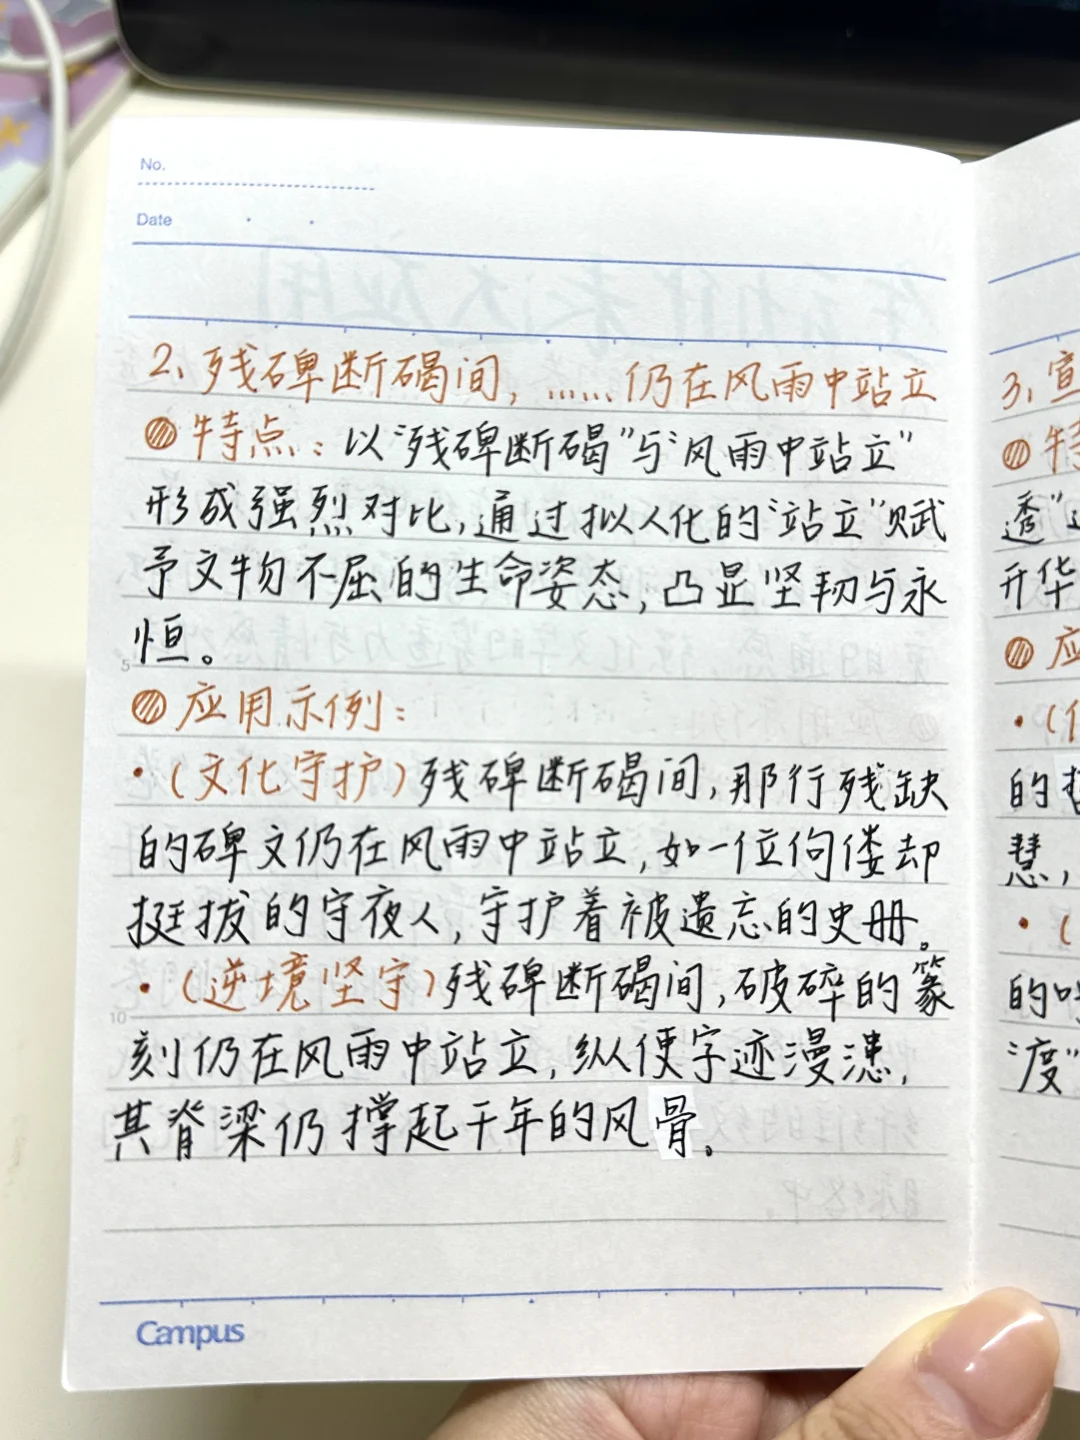 No.
Date
2、残碑断碣间,……仍在风雨中站立
特点:以“残碑断碣”与“风雨中站立”
形成强烈对比,通过拟人化的“站立”赋
予文物不屈的生命姿态,凸显坚韧与永
恒。
5
应用示例:
·(文化守护)残碑断碣间,那行残缺
的碑文仍在风雨中站立,如一位佝偻却
挺拔的守夜人,守护着被遗忘的史册。
·(逆境坚守)残碑断碣间,破碎的篆
10
刻仍在风雨中站立,纵使字迹漫漶,
其脊梁仍撑起千年的风骨。
Campus
3、宣
特
透”
升华
应
·(
的
慧,
·(
的
“度”